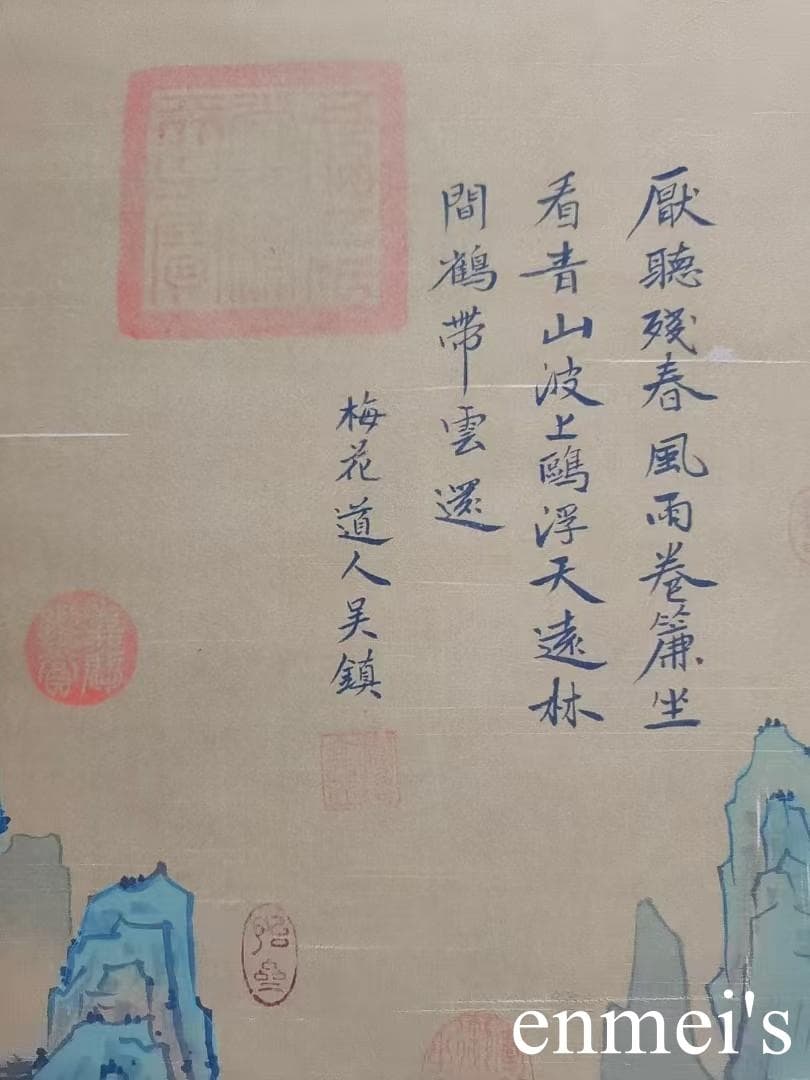 厭聽殘春風雨卷簾坐
看青山波上鷗浮天遠林
間鶴帶雲還
梅花道人吴鎮
enmei's